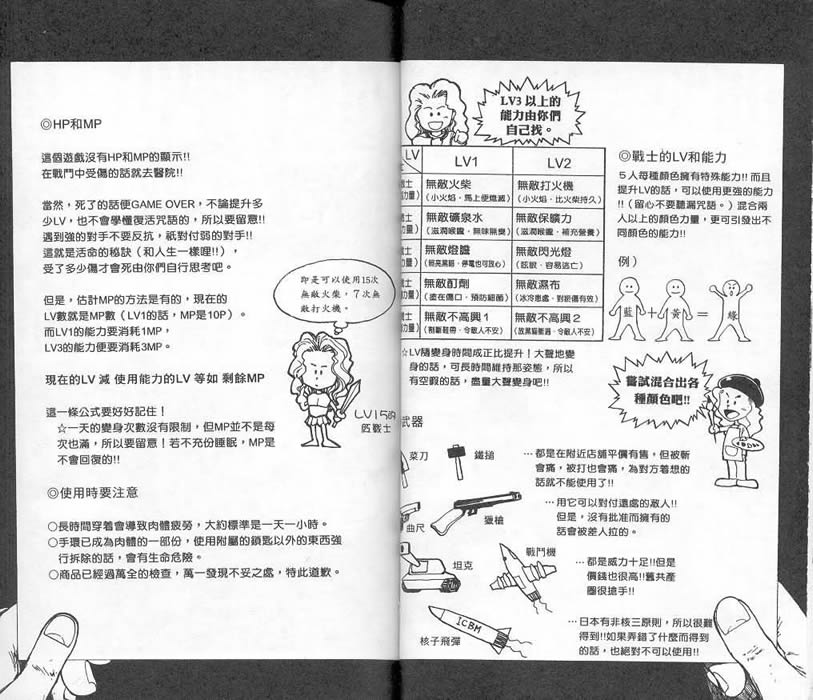 ◎HP和MP
這個遊戲沒有HP和MP的顯示!!
在戰鬥中受傷的話就去醫院!!
當然，死了的話便GAME OVER，不論提升多
少LV，也不會學懂復活咒語的，所以要留意!!
遇到強的對手不要反抗，祇對付弱的對手!!
這就是活命的秘訣（和人生一樣哩!!），
受了多少傷才會死由你們自行思考吧。
但是，估計MP的方法是有的，現在的
LV數就是MP數（LV1的話，MP是10P）。
而LV1的能力要消耗1MP，
LV3的能力便要消耗3MP。
現在的LV 減 使用能力的LV 等如 剩餘MP
這一條公式要好好記住！
☆一天的變身次數沒有限制，但MP並不是每
次也滿，所以要留意！若不充份睡眠，MP是
不會回復的!!
◎使用時要注意
○長時間穿着會導致肉體疲勞，大約標準是一天一小時。
○手環已成為肉體的一部份，使用附屬的鎖匙以外的東西強
行拆除的話，會有生命危險。
○商品已經過萬全的檢查，萬一發現不妥之處，特此道歉。
即是可以使用15次
無敵火柴，7次無
敵打火機。
LV15的
伍戰士
LV3以上的
能力由你們
自己找。
LV
LV1
LV2
無敵火柴
（小火焰．馬上便熄滅）
無敵打火機
（小火焰．比火柴持久）
無敵礦泉水
（滋潤喉嚨．無味無臭）
無敵保礦力
（滋潤喉嚨．補充營養）
無敵燈膽
無敵閃光燈
（眩眼．容易逃亡）
無敵酊劑
（塗在傷口．預防細菌）
無敵濕布
（冰冷患處．對挫傷有效）
無敵不高興1
無敵不高興2
☆LV隨變身時間成正比提升！大聲地變
身的話，可長時間維持那姿態，所以
有空假的話，盡量大聲變身吧!!
◎戰士的LV和能力
５人每種顏色擁有特殊能力!!而且
提升LV的話，可以使用更強的能力
!!（留心不要聽漏咒語。）混合兩
人以上的顏色力量，更可引發出不
同顏色的能力!!
例）
藍＋黃＝綠
嘗試混合出各
種顏色吧!!
武器
菜刀
鐵搥
…都是在附近店舖平價有售，但被斬
會痛，被打也會痛，為對方着想的
話就不能使用了!!
曲尺
獵槍
…用它可以對付遠處的敵人!!
但是，沒有批准而擁有的
話會被差人拉的。
坦克
戰鬥機
…都是威力十足!!但是
價錢也很高!!舊共產
圈很搶手!!
ICBM
核子飛彈
…日本有非核三原則，所以很難
得到!!如果弄錯了什麼而得到
的話，也絕對不可以使用!!